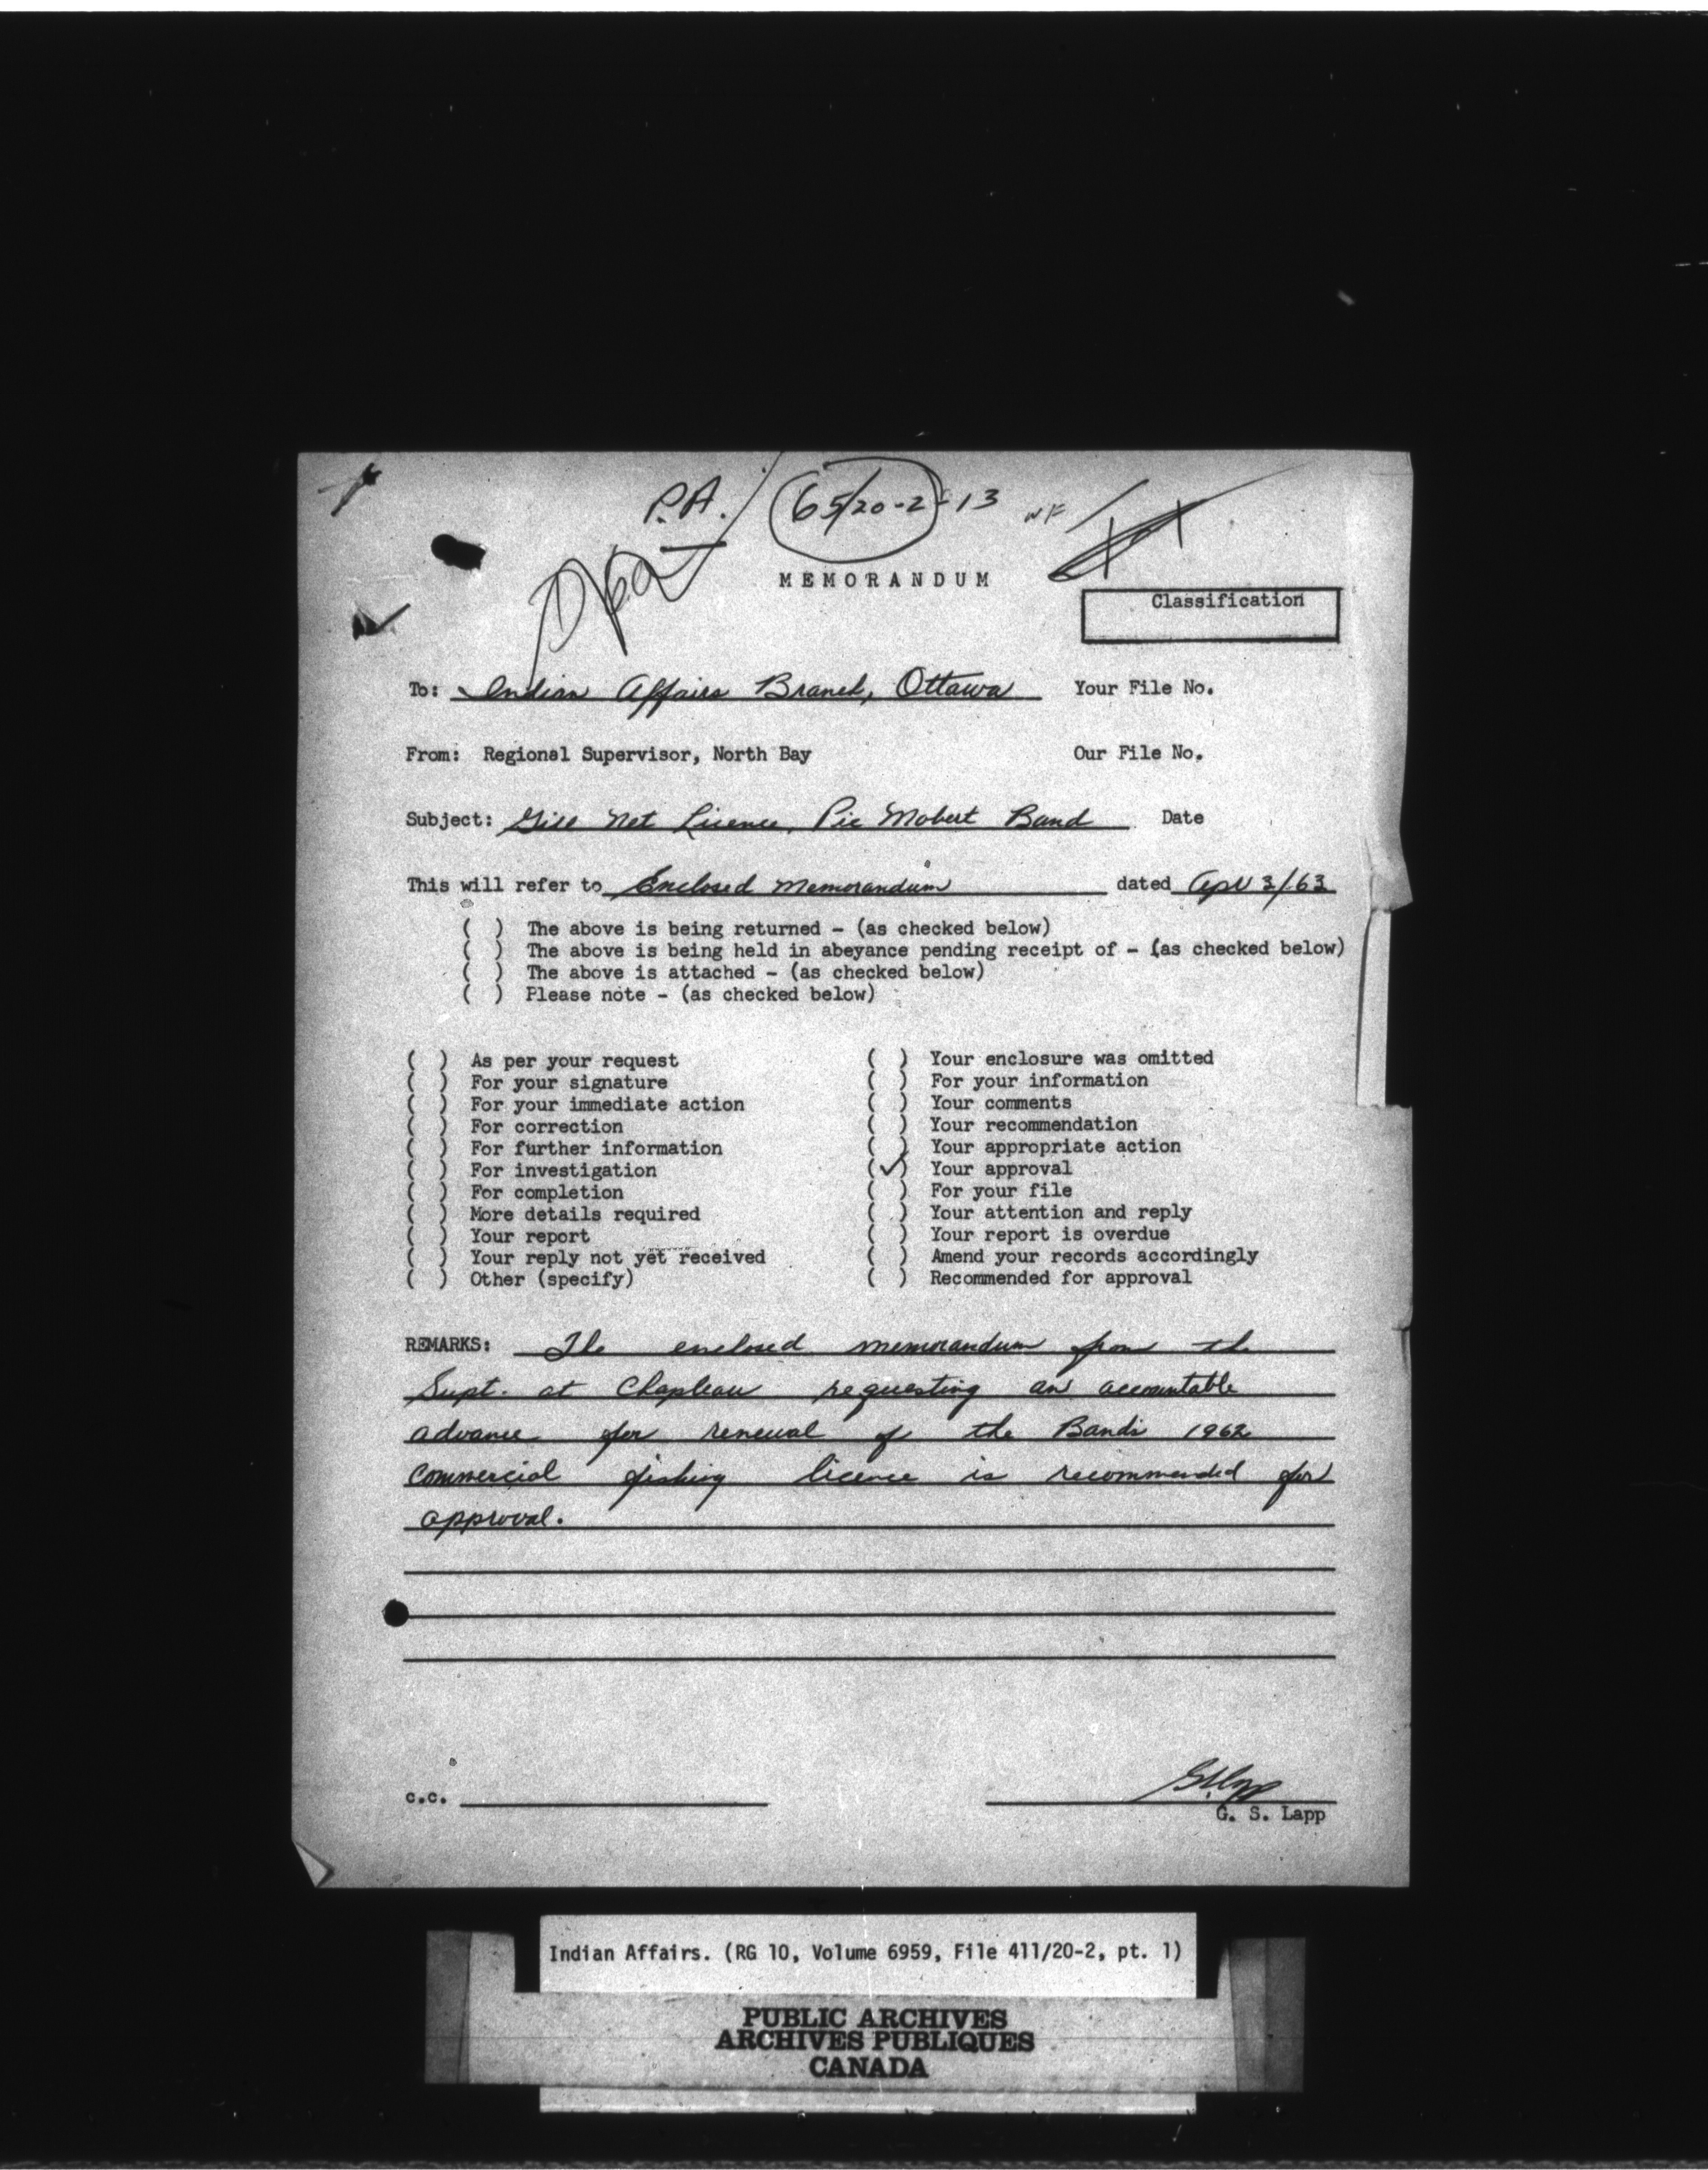 P.A.
65/20-2-13
MEMORANDUM
Classification
To: Indian Affairs Branch, Ottawa Your File No.
From: Regional Supervisor, North Bay Our File No.
Subject: Gill Net Licence, Pic Mobert Band Date
This will refer to Enclosed Memorandum dated Apr 3/63
( ) The above is being returned - (as checked below)
( ) The above is being held in abeyance pending receipt of - (as checked below)
( ) The above is attached - (as checked below)
( ) Please note - (as checked below)
( ) As per your request
( ) For your signature
( ) For your immediate action
( ) For correction
( ) For further information
( ) For investigation
( ) For completion
( ) More details required
( ) Your report
( ) Your reply not yet received
( ) Other (specify)
( ) Your enclosure was omitted
( ) For your information
( ) Your comments
( ) Your recommendation
( ) Your appropriate action
(✓) Your approval
( ) For your file
( ) Your attention and reply
( ) Your report is overdue
( ) Amend your records accordingly
( ) Recommended for approval
REMARKS: The enclosed memorandum from the
Supt. at Chapleau requesting an accountable
advance for renewal of the Band's 1962
commercial fishing licence is recommended for
approval.
c.c.
G. S. Lapp
Indian Affairs. (RG 10, Volume 6959, File 411/20-2, pt. 1)
PUBLIC ARCHIVES
ARCHIVES PUBLIQUES
CANADA